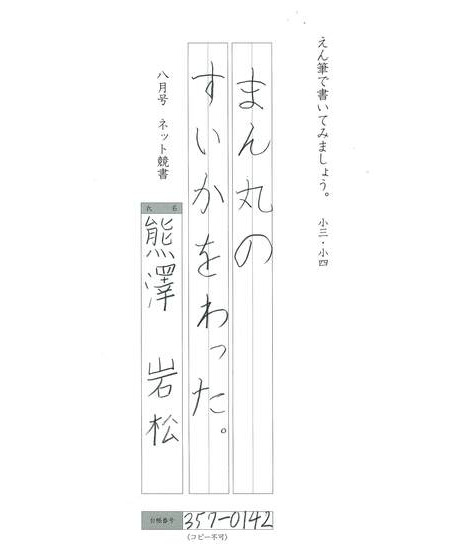 えん筆で書いてみましょう。 小三・小四
まん丸の
すいかをわった。
八月号 ネット競書
氏名
熊澤 岩松
台帳番号 357-0142
(コピー不可)